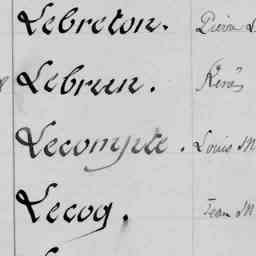 Lebreton. Pierre L
Lebrun. René
Lecompte. Louis M
Lecoq. Jean M